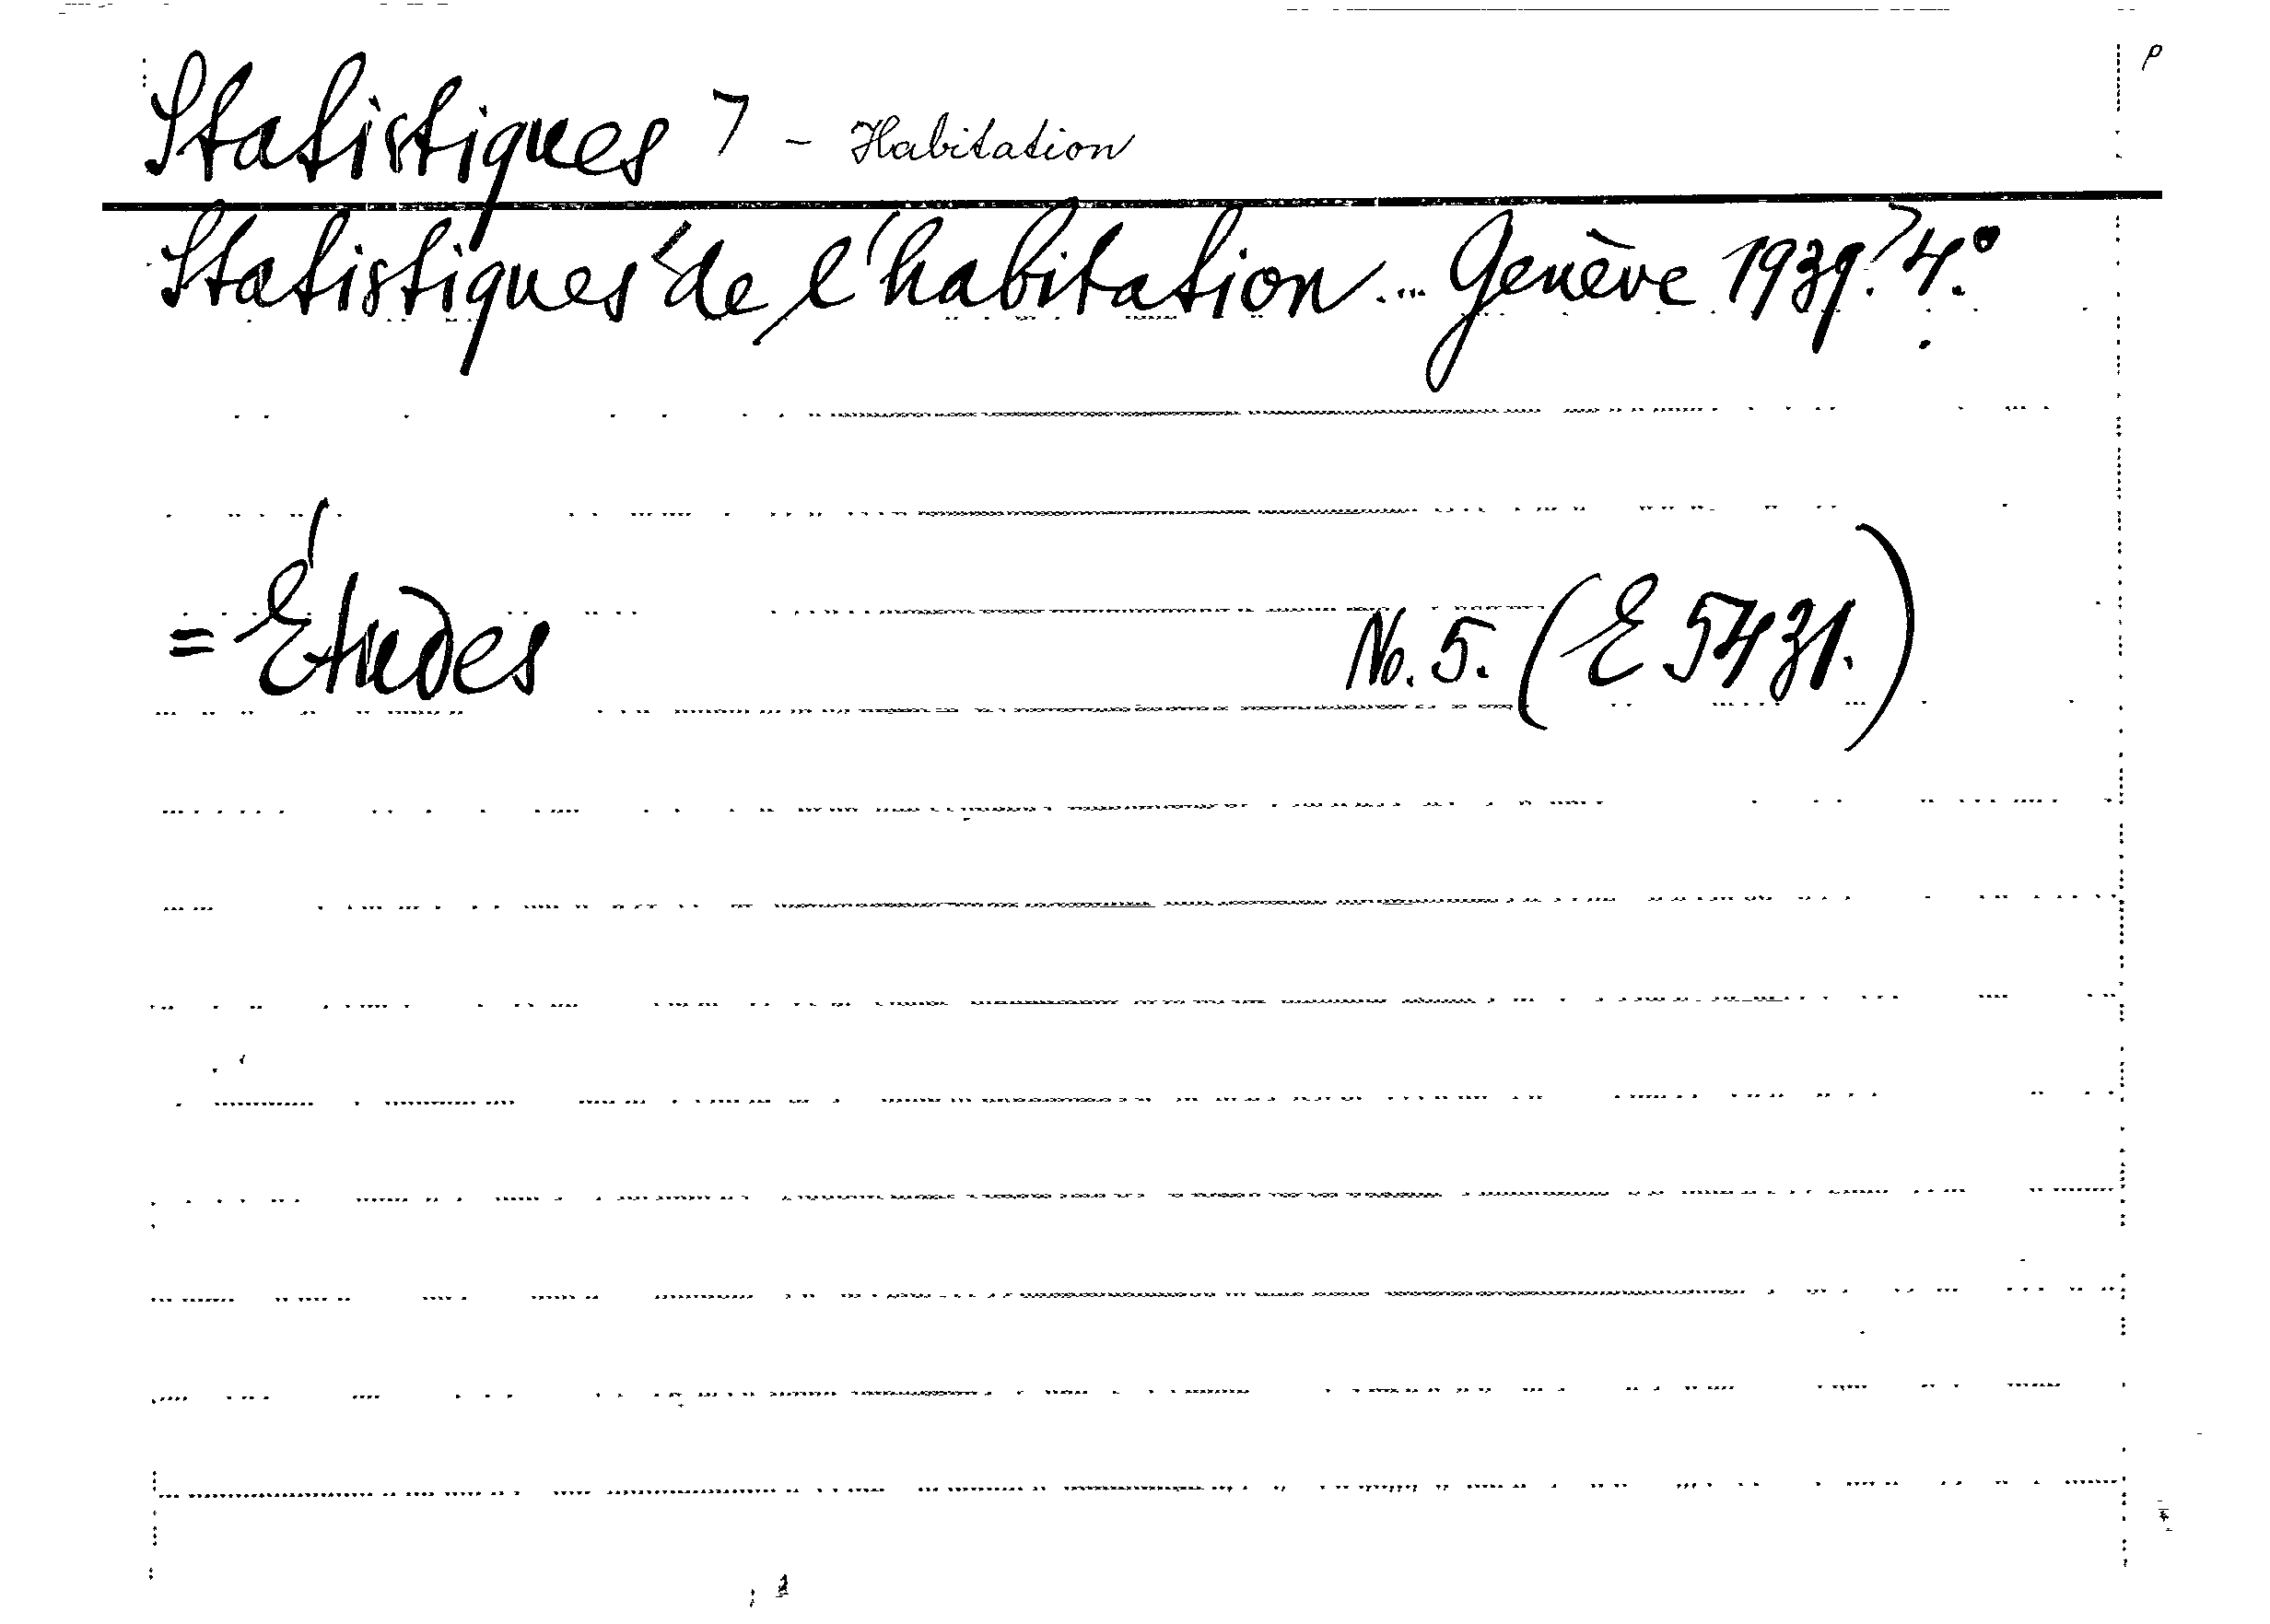 Statistiques 7 - Habitation
Statistiques de l'habitation... Genève 1939. 4.°
= Études No. 5. (E 5431.)